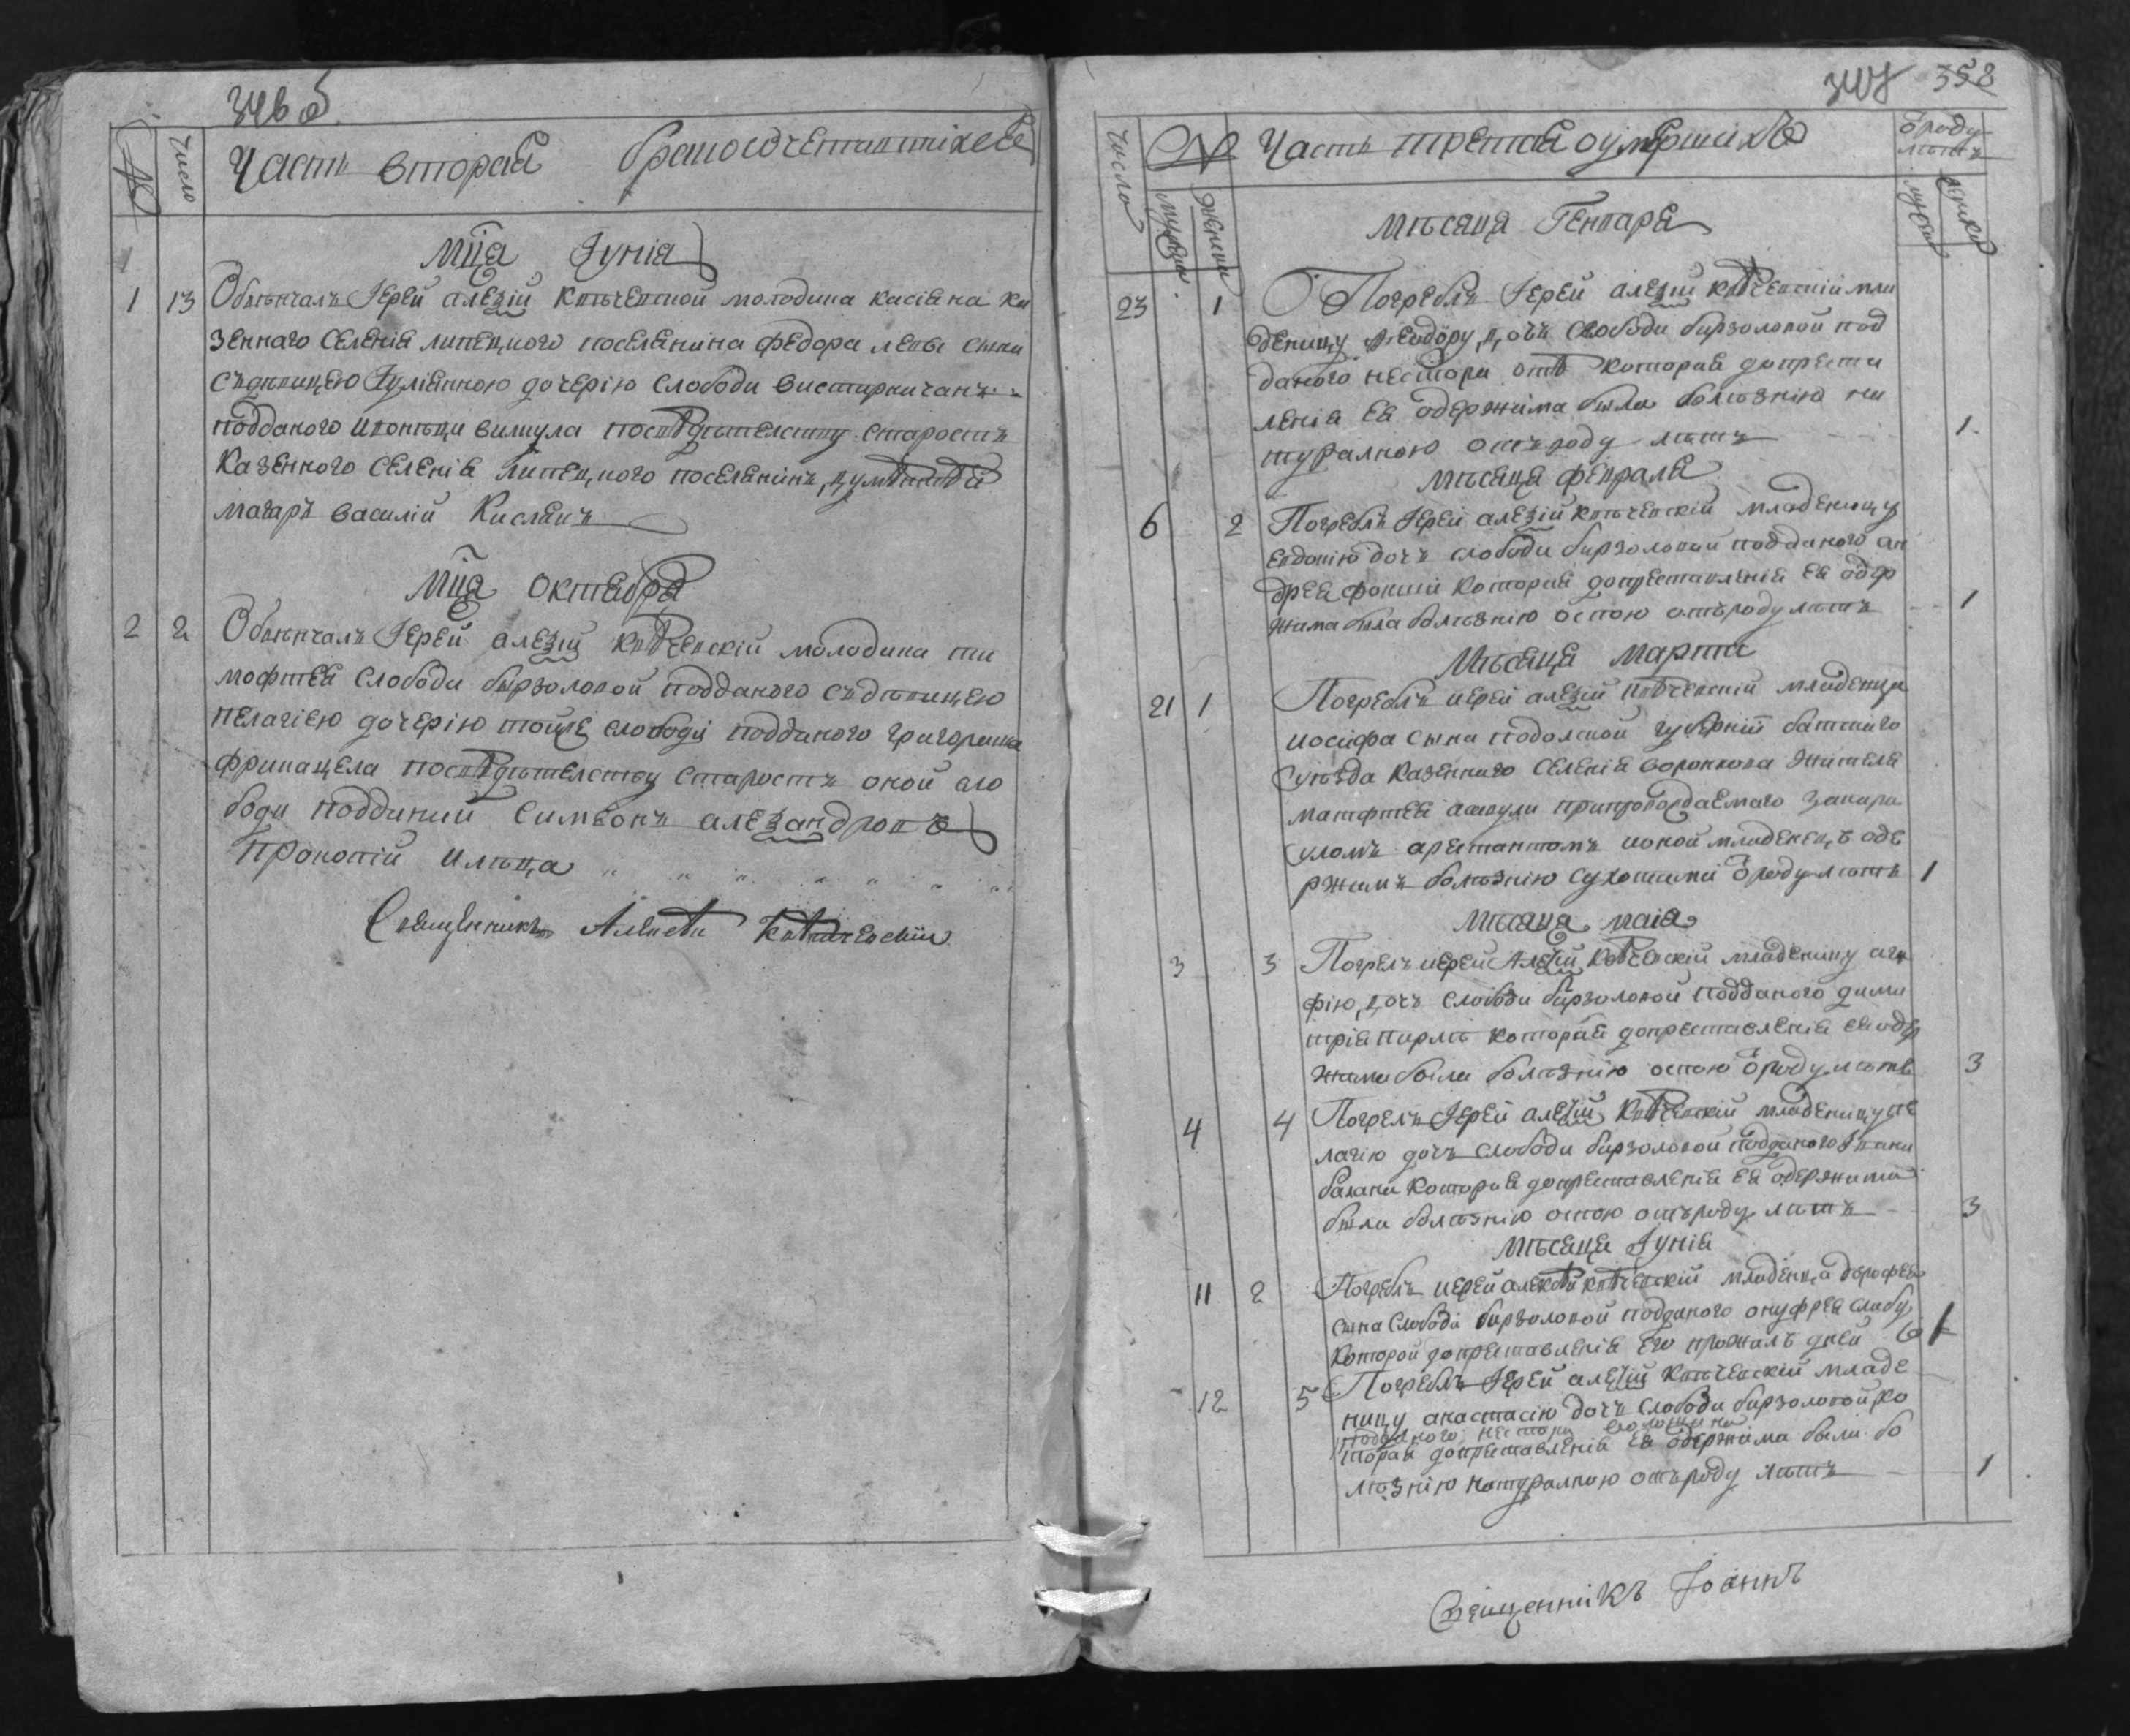 346 об
№ число Часть вторая бракосочетавшихся
Мца Іуніа
1 13 Обвѣнчалъ Іерей алеѯій квѣчевской молодика касіана ка
зеннаго селеніа липецкого поселянина федора левы сына
съдѣвицею Іуліанною дочерію слободи
подданого посвѣдѣтелству старостъ
казенного селеніа липецкого поселянинъ,
василій Кислякъ
Мца октабра
2 2 Обвѣнчалъ Іерей алеѯій квѣчевскій молодика ти
мофтея слободи бырзоловой подданого съдѣвицею
пелагіею дочерію тойже слободи подданого григораша
посвѣдѣтелству старостъ оной сло
боди подданий Симеонъ алеѯандровъ
Прокопій
Священникъ Алексѣй
347 358
число № Часть третая оумершихъ ѿроду лѣтъ
мужеска женска мужска женска
мѣсяца Генвара
23 1 Погреблъ Іерей алеѯій квѣчевскій мла
деницу Феодору, дочъ слободи бырзоловой под
даного нестора котораа допреста
леніа еа одержима была болѣзнію на
туралною отъроду лѣтъ 1
мѣсяца февраля
6 2 Погреблъ Іерей алеѯій квѣчевскій младеницу
евдокію дочъ слободи бырзоловой подданого ан
дреа котораа допреставленіа еа одер
жима была болѣзнію оспою отъроду лѣтъ 1
Мѣсяца Марта
21 1 Погреблъ иерей алеѯій квѣчевскій младенца
иосифа сына подолской губерніи балтского
уѣзда казенного селеніа воронкова жителя
матфтея препровождаемаго закара
уломъ арештантомъ ионой младенецъ оде
ржимъ болѣзнію сухотами ѿроду лѣтъ 1
мѣсяца маіа
3 3 Погрелъ иерей Алеѯій квѣчевскій младеницу ага
фію, дочъ слободи бырзоловой подданого дими
тріа котораа допреставленіа еа одер
жима была болѣзнію оспою ѿроду лѣтъ 3
4 4 Погрелъ Іерей алеѯій квѣчевскій младеницу пе
лагію дочъ слободи бырзоловой подданого Івана
балана котораа допреставленіа еа одержима
была болѣзнію оспою отъроду лѣтъ 3
мѣсяца Іуніа
11 2 Погреблъ иерей алексѣй квѣчевскій младенца дорофеа
сына слободи бырзоловой подданого онуфреа слабу
которой допреставленіа его прожилъ дней 6
12 5 Погреблъ Іерей алеѯій квѣчевскій младе
ницу анастасію дочъ слободи бырзоловой ко
подданого нестора
тораа допреставленіа еа одержима были бо
лѣзнію натуралною отъроду лѣтъ 1
Священникъ Іоаннъ